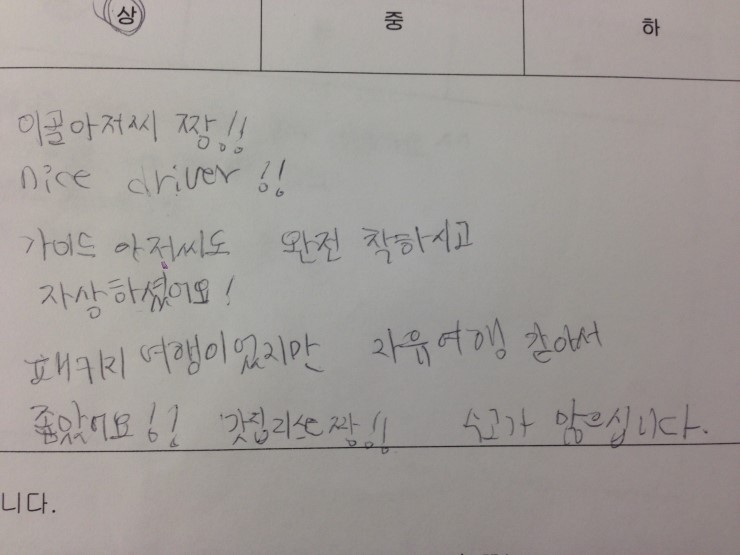 상 중 하
이골아저씨 짱!!
nice driver !!
가이드 아저씨도 완전 착하시고
자상하셨어요!
패키지 여행이었지만 자유여행 같아서
좋았어요!! 갓집리쓰 짱!! 수고가 많으십니다.
니다.